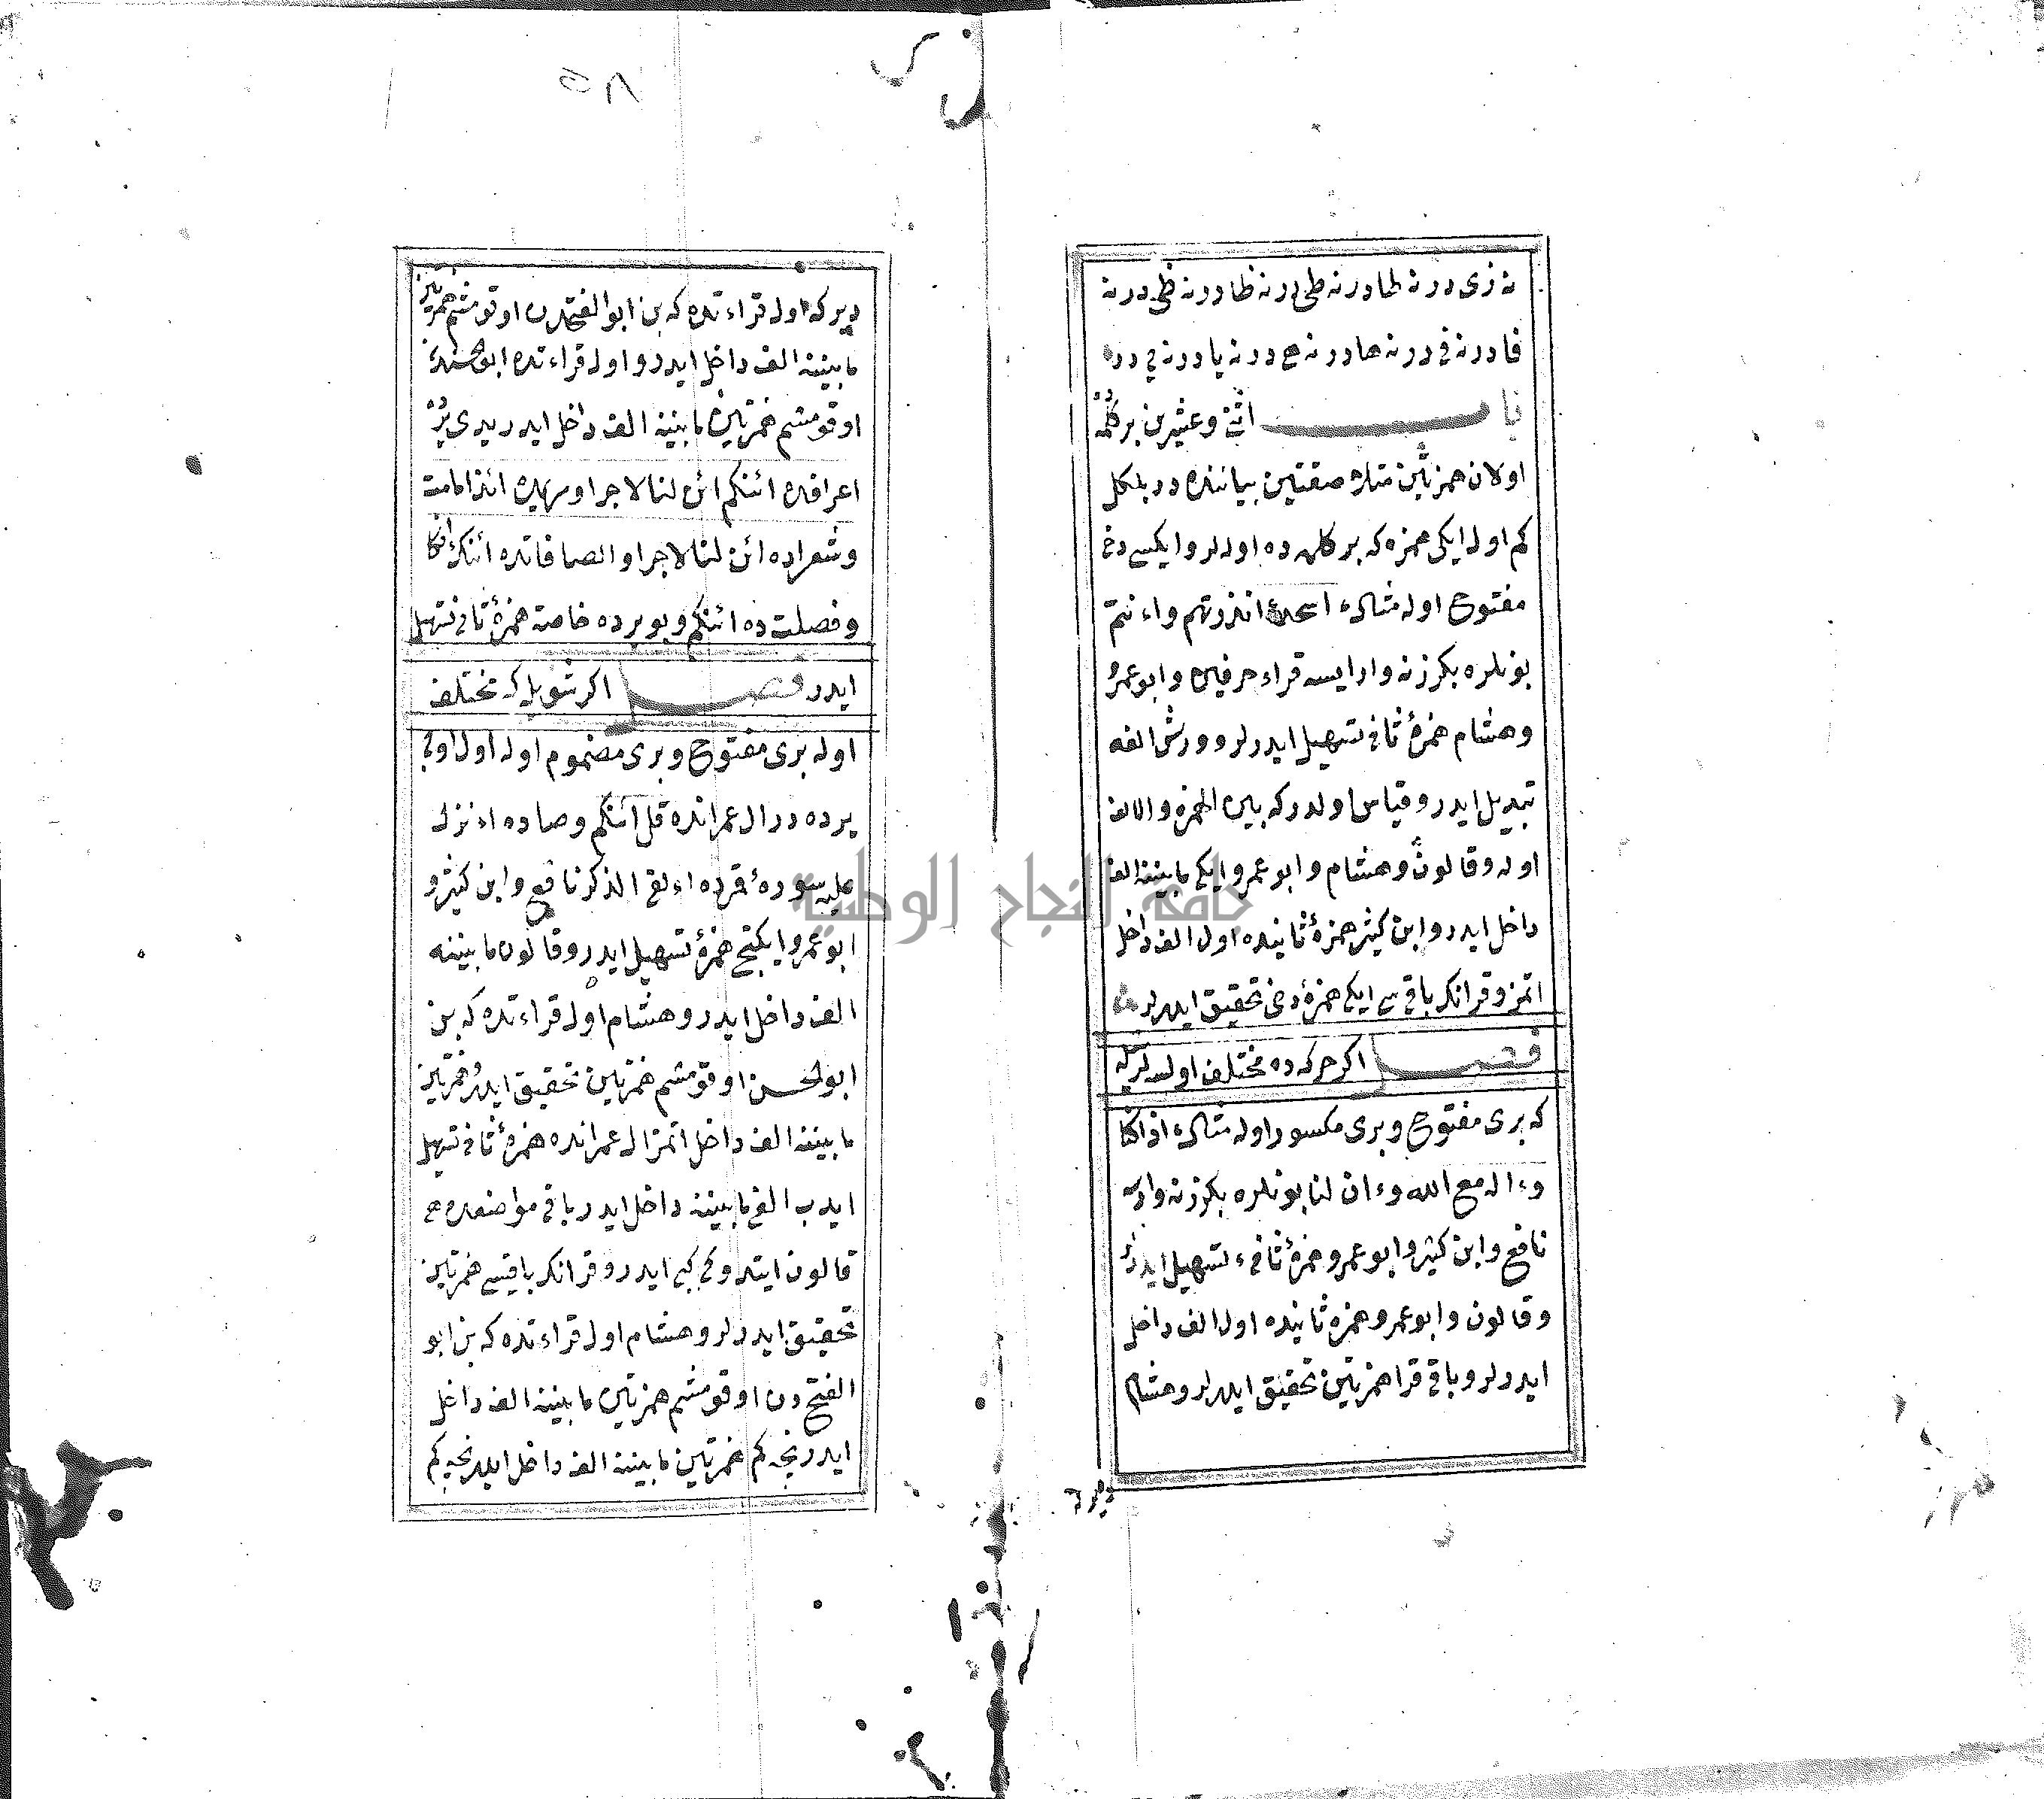 نه زى در نه طا درنه طى درنه ظا درنه ظى درنه
فا درنه فى درنه ها درنه هى درنه يا درنه يى در
باب اثنى وعشرين بر كلمه
اولان همزتين متلاصقتين بياننده در بلكل
كم اول ايكى همزه كه بر كلمه ده اولدلر و ايكسى دخى
مفتوح اوله مثالى ءانذرتهم واءنتم
بونلره بكرزنه وارايسه قراء حرفين وابو عمرو
وهشام همزۀ ثانى تسهيل ايدرلر وورش الفه
تبديل ايدر وقياس اولدر كه بين الهمزه والالف
اوله وقالون وهشام وابو عمرو ايكى مابيننه الف
داخل ايدر وابن كثير همزۀ ثانيده اول الف داخل
اتمز وقرانك باقى سى ايكى همزۀ دخى تحقيق ايدرلر
فصل اكر حركه ده مختلف اولسه لر
كه برى مفتوح وبرى مكسور اوله مثالى اذاكا
وءاله مع الله وءان لنا بونلره بكرزنه وارسه
نافع وابن كثير وابو عمرو همزۀ ثانىء تسهيل ايدرلر
وقالون وابو عمرو همزه ثانيده اول الف داخل
ايدرلر وباقى قرا همزتين تحقيق ايدرلر وهشام
ديركه
٨٥
ديركه اول قراءتده كه بن ابو الفتحدن اوقومشم همزتين
مابيننه الف داخل ايدر واول قراءتده ابو الحسندن
اوقومشم همزتين مابيننه الف داخل ايدر يدى يرده
اعرافده ائنكم ائن لنا لاجرا ومريمده ائذا مامت
وشعراده ائن لنا لاجرا والصافاتده ائنك ائفكا
وفصلت ده ائنكم وبو يرده خاصة همزۀ ثانى تسهيل
ايدر فصل اكر شويله كه مختلف
اوله برى مفتوح وبرى مضموم اوله اول اوچ
يرده در ال عمرانده قل ائنكم وصاده اءنزل
عليه سورۀ قمرده اءلقى الذكر نافع وابن كثير و
ابو عمرو ايكنجى همزۀ تسهيل ايدر وقالون مابيننه
الف داخل ايدر وهشام اول قراءتده كه بن
ابو الحسن اوقومشم همزتين تحقيق ايدر همزتين
مابيننه الف داخل اتمز ال عمرانده همزۀ ثانى تسهيل
ايدب الف مابيننه داخل ايدر باقى مواضعده هم
قالون ايتدوكى كبى ايدر وقرانك باقيسى همزتين
تحقيق ايدرلر وهشام اول قراءتده كه بن ابو
الفتح دن اوقومشم همزتين مابيننه الف داخل
ايدر نجه كم همزتين مابيننه الف داخل ايدر نجه كم
جامعة النجاح الوطنية